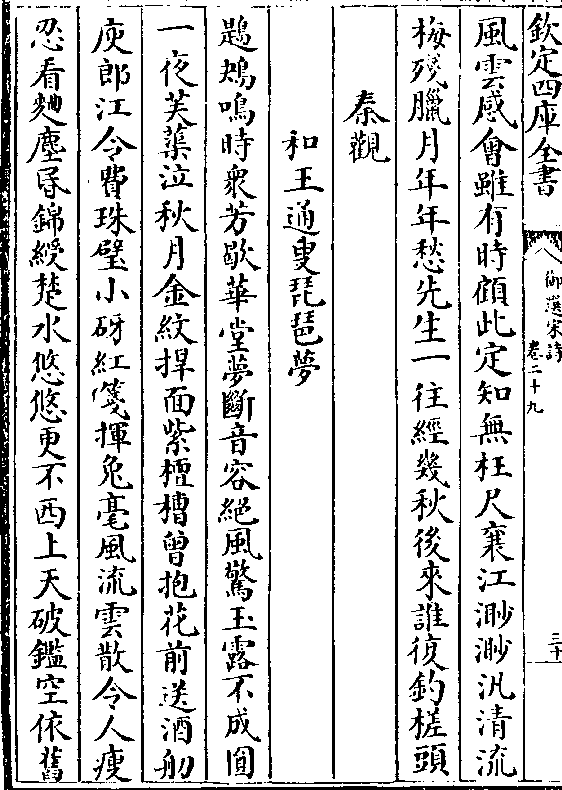 欽定四庫全書
御選宋詩
卷二十九
三十
風雲感會雖有時顧此定知無枉尺襄江渺渺汎清流
梅殘臘月年年愁先生一往經幾秋後來誰復釣槎頭
秦觀
和王通叟琵琶夢
鶗鴂鳴時衆芳歇華堂夢斷音容絕風驚玉露不成圓
一夜芙蕖泣秋月金紋捍面紫檀槽曾抱花前送酒舠
庾郎江令費珠璧小砑紅箋揮兔毫風流雲散令人瘦
忍看麯塵昬錦綬楚水悠悠更不西上天破鑑空依舊